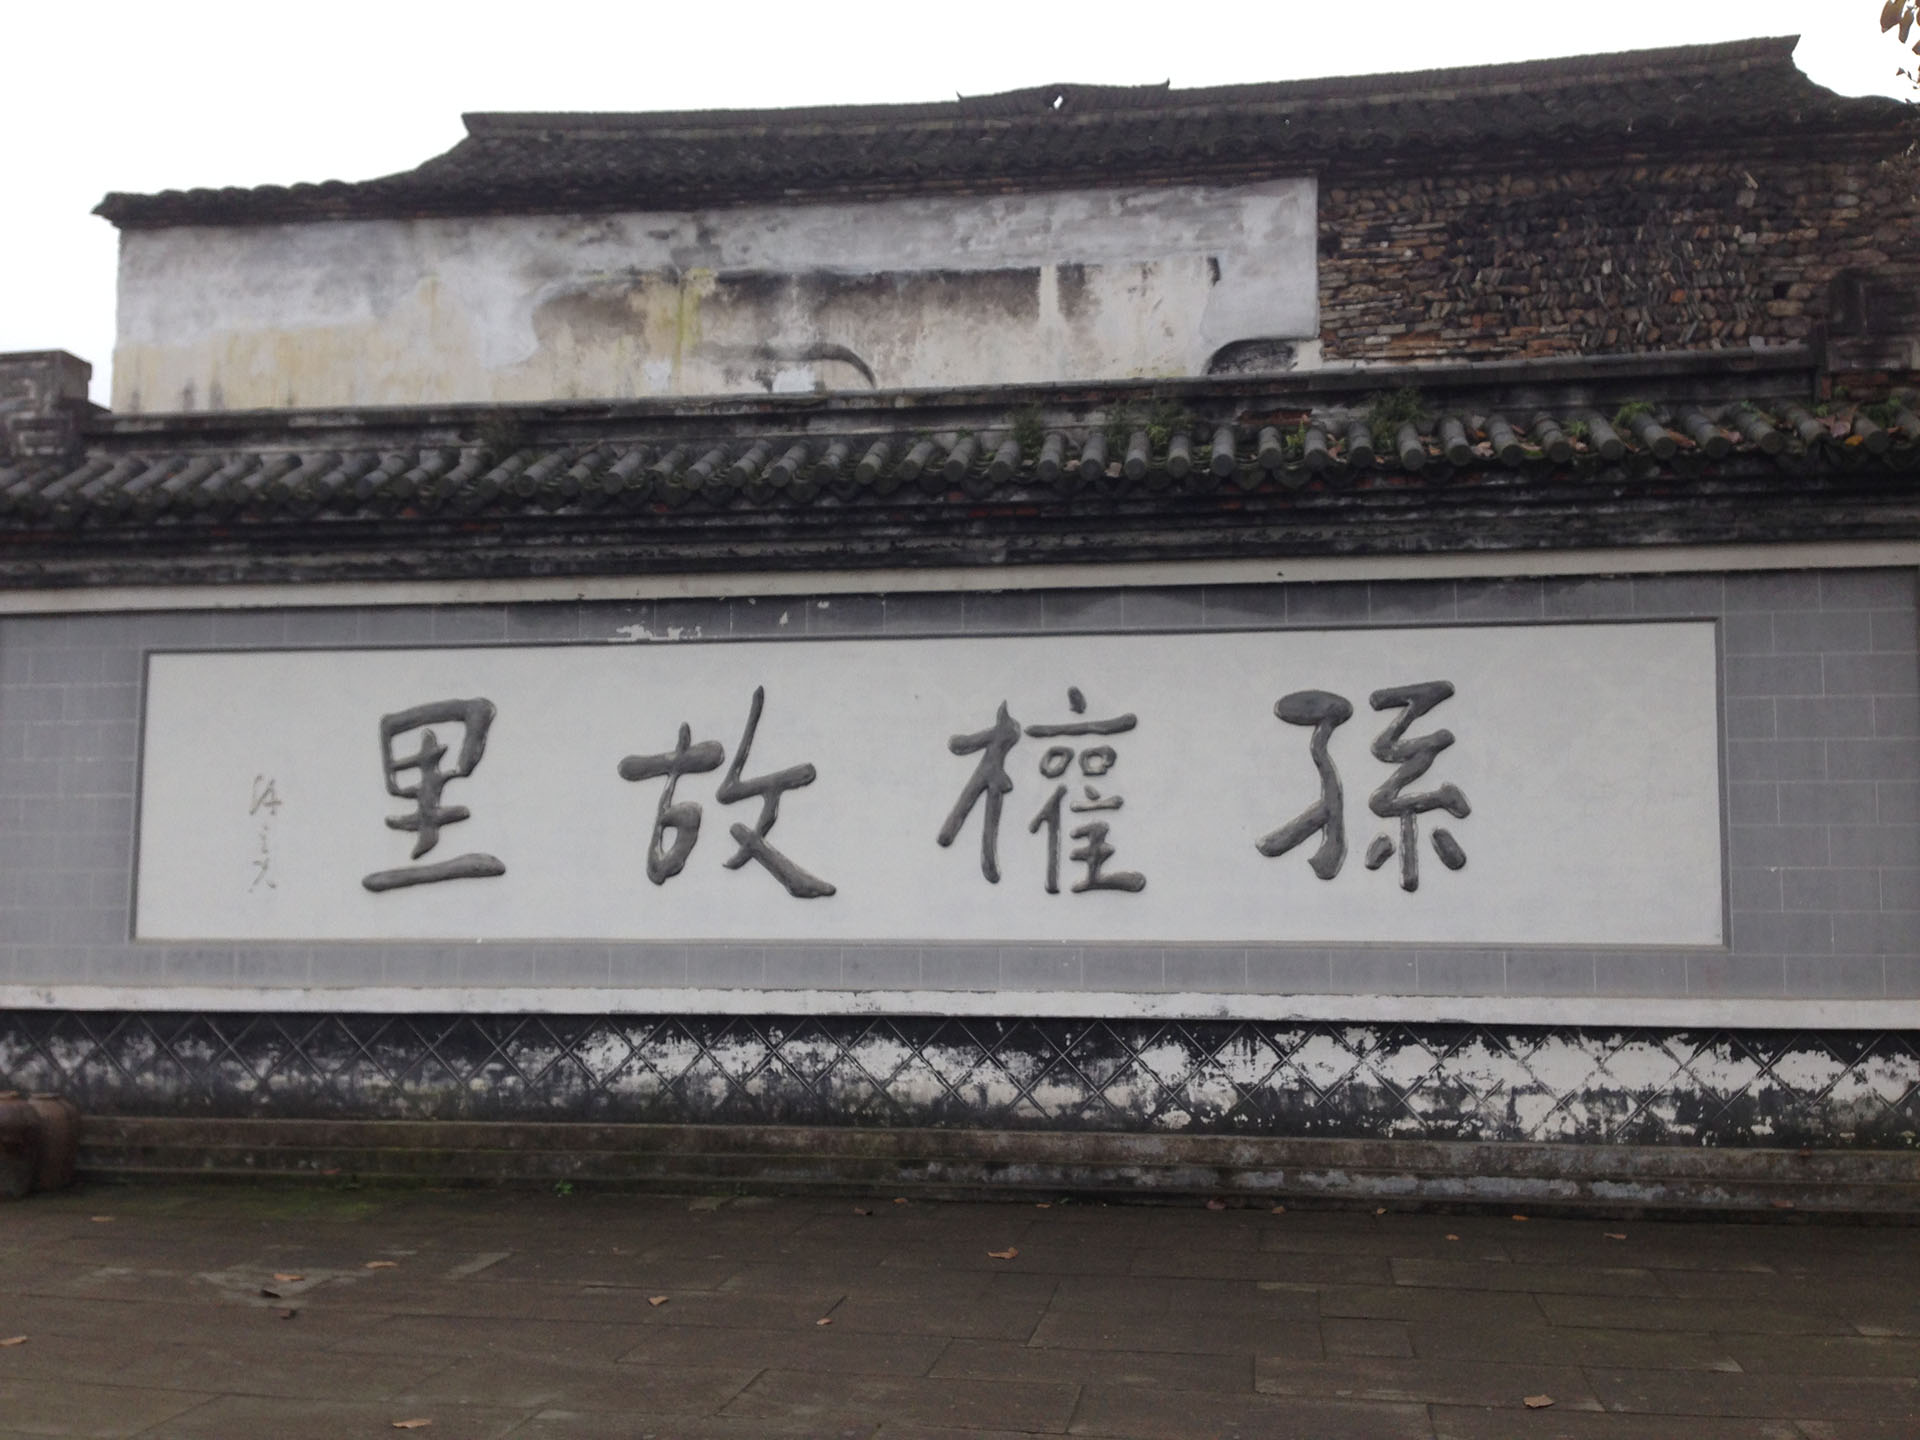 孫權故里